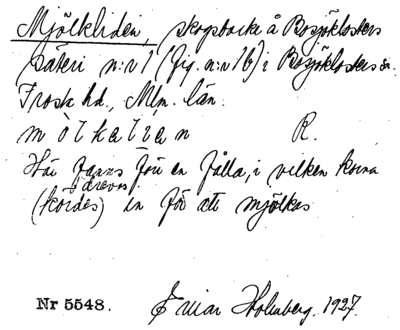 Mjölkliden, skogsbacke å Bosjöklosters
säteri n:r 1 (fig. n:r 16) i Bosjöklosters sn.
Frosta hd., Mlm. län.
mȯlkaliȧn R.
Här fanns förr en fålla, i vilken korna
dreves
(kördes) in för att mjölkas
Nr 5548. Einar Holmberg. 1927.